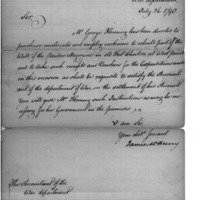 War department
July 26 1798.
Sir,
Mr George Fleming has been directed to
purchase materials and employ workmen to rebuild part of the
Wall of the
and to take such receipts and Vouchers for the Expenditures made
in this service as shall be requisite to satisfy the Account
ant of the department of War on the settlement of his Account
You will give Mr Fleming such Instructions as may be ne
cessary for his Government in the premises.
I am Sir,
Your obdt Servant
James McHenry
The Accountant of the
War department